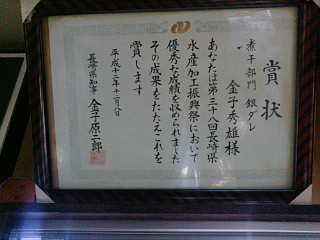 賞状
煮干部門 銀ダレ
金子秀雄様
あなたは第三十八回長崎県
水産加工振興祭において
優秀な成績を収められました
その成果をたたえこれを
賞します
平成十二年十二月八日
長崎県知事 金子原二郎